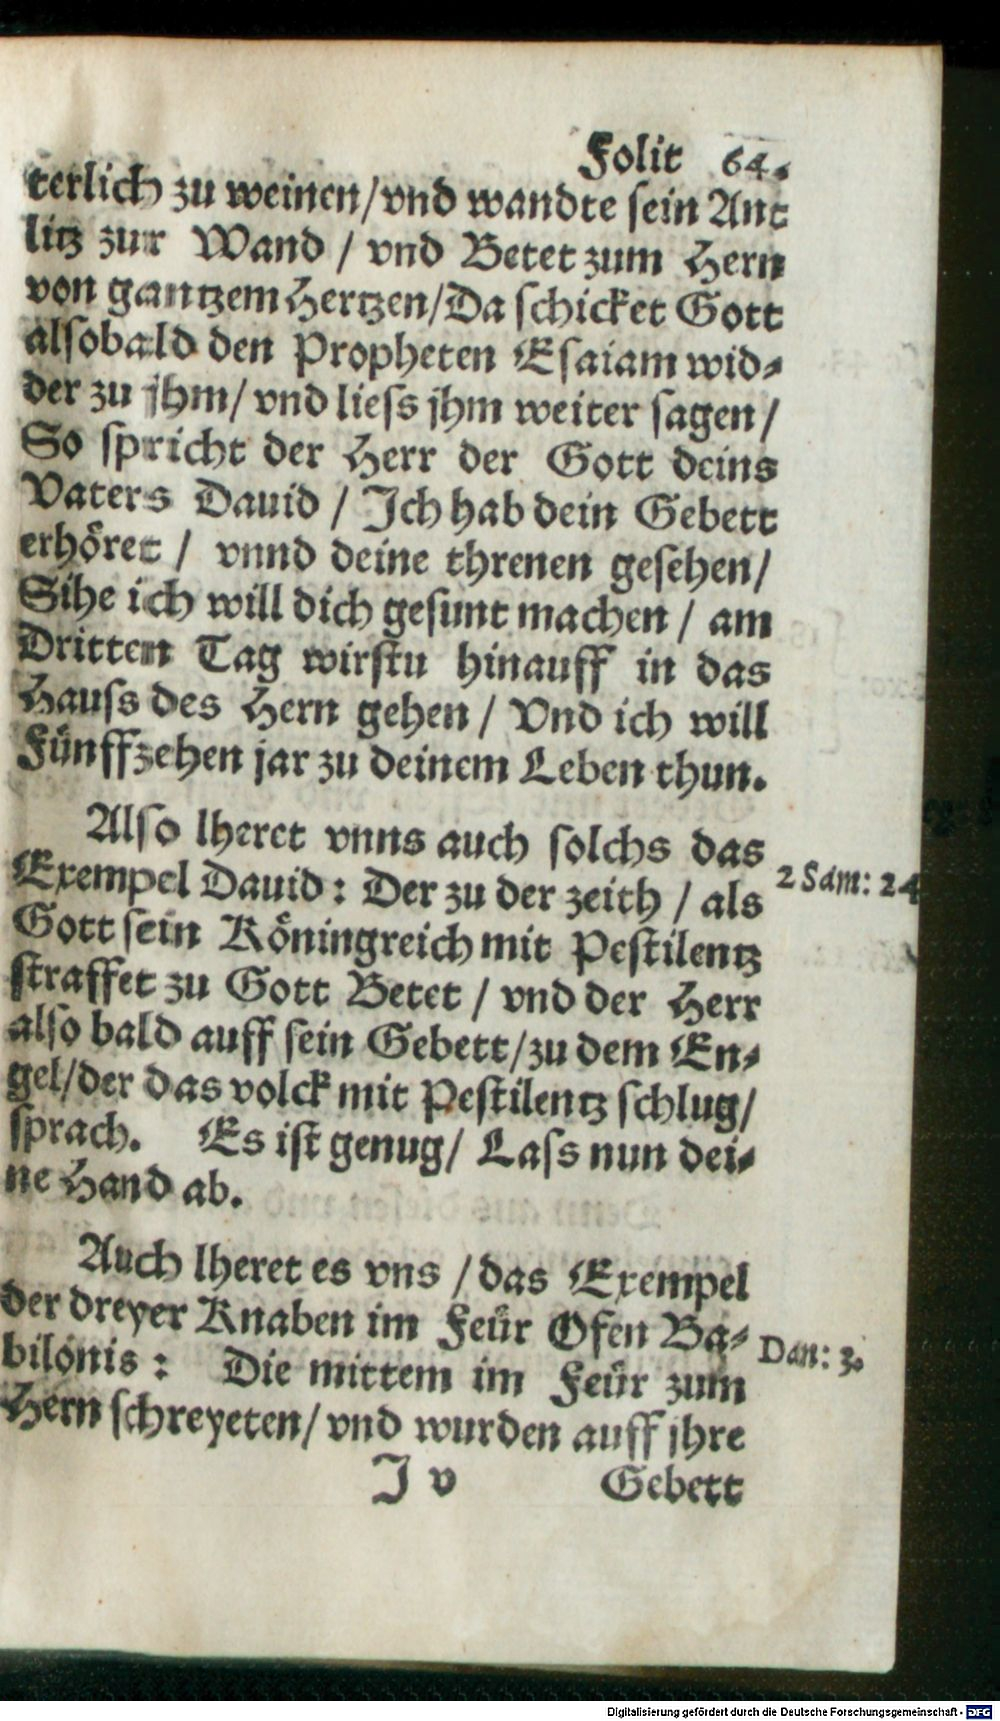 Folit 64.
terlich zu weinen/vnd wandte sein Ant
litz zur Wand / vnd Betet zum Hern
von gantzem Hertzen/Da schicket Gott
alsobald den Propheten Esaiam wid⸗
der zu jhm/ vnd liess jhm weiter sagen/
So spricht der Herr der Gott deins
Vaters Dauid / Ich hab dein Gebett
erhöret / vnnd deine threnen gesehen/
Sihe ich will dich gesunt machen / am
Dritten Tag wirstu hinauff in das
Hauss des Hern gehen / Vnd ich will
Fünffzehen jar zu deinem Leben thun.
Also lheret vnns auch solchs das
Exempel Dauid: Der zu der zeith / als
2 Sam: 24
Gott sein Köningreich mit Pestilentz
straffet zu Gott Betet / vnd der Herr
also bald auff sein Gebett/zu dem En⸗
gel/der das volck mit Pestilentz schlug/
sprach. Es ist genug/ Lass nun dei⸗
ne Hand ab.
Auch lheret es vns / das Exempel
der dreyer Knaben im Feür Ofen Ba⸗
Dan: 3.
bilonis: Die mittem im Feür zum
Hern schreyeten/ vnd wurden auff jhre
J v Gebett
Digitalisierung gefördert durch die Deutsche Forschungsgemeinschaft - DFG